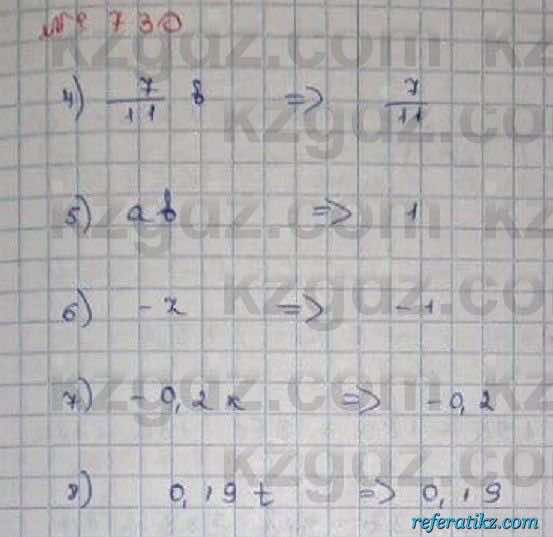 № 730
4) 7/11 b => 7/11
5) ab => 1
6) -z => -1
7) -0,2x => -0,2
8) 0,19t => 0,19
kzgdz.com
kzgdz.com
kzgdz.com
kzgdz.com
kzgdz.com
referatikz.com